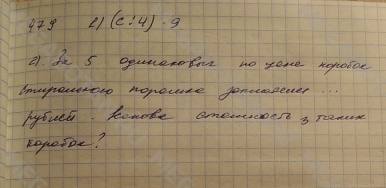 479 в) (с : 4) · 9
а) За 5 одинаковых по цене коробок
стирального порошка заплатили ...
рублей. Какова стоимость 3 таких
коробок?